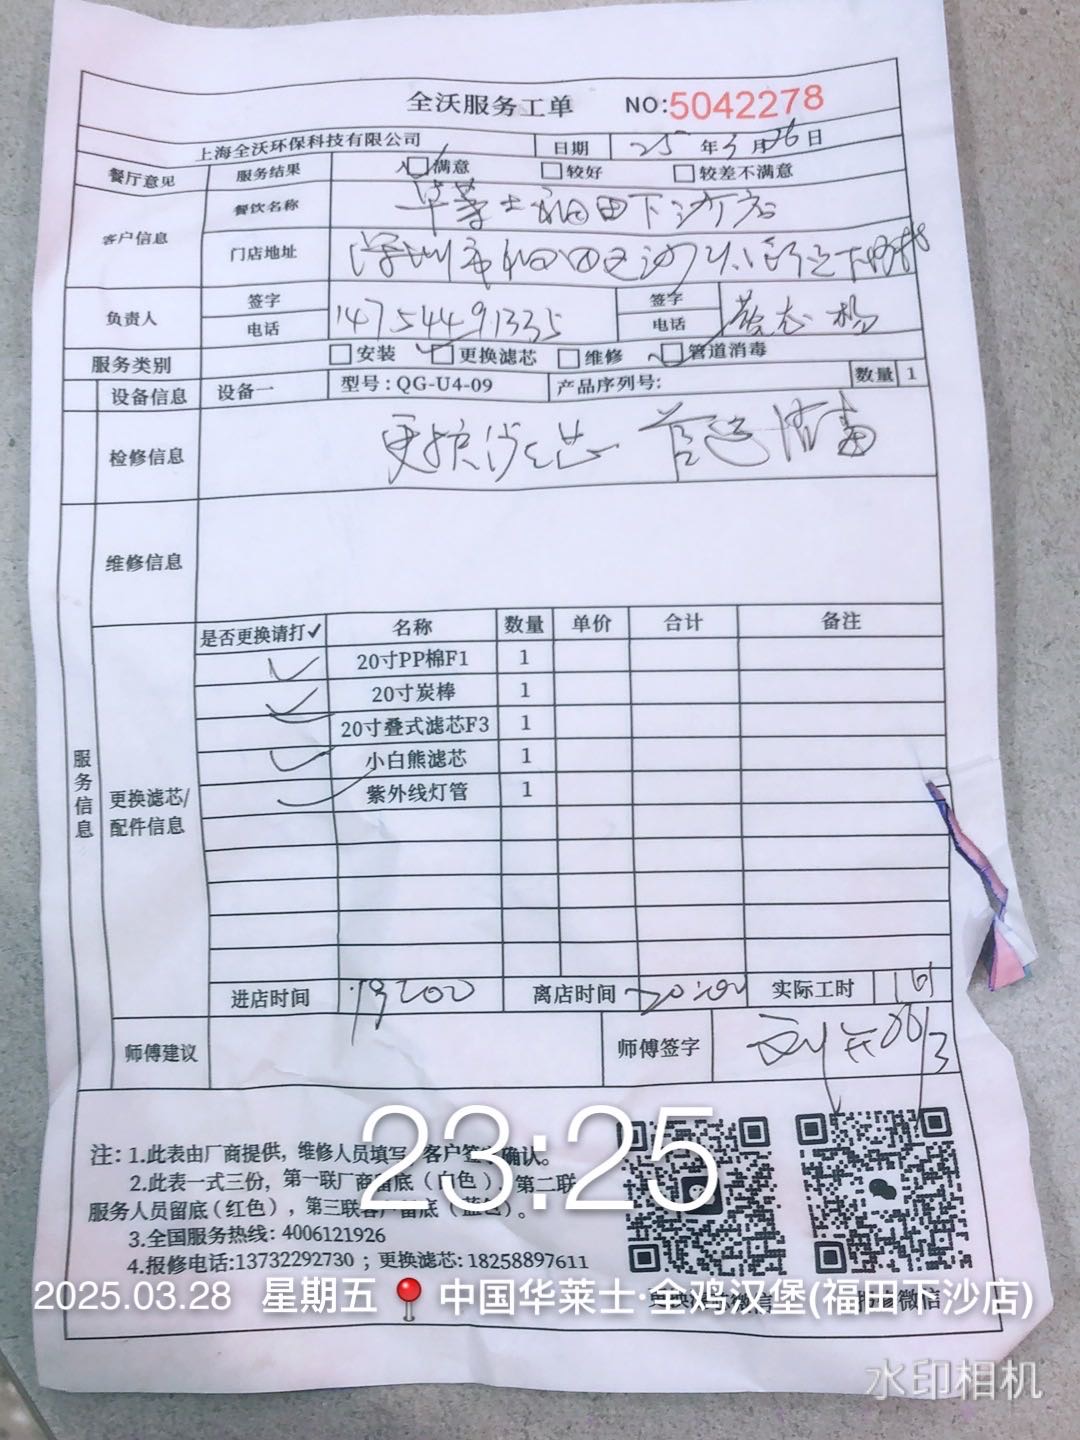 全沃服务工单 NO:5042278
上海全沃环保科技有限公司 日期 25年3月26日
餐厅意见 服务结果 满意 较好 较差不满意
客户信息 餐饮名称 华莱士福田下沙店
门店地址 深圳市福田区沙头街道下沙村
负责人 签字 签字
电话 14754491335 电话
服务类别 安装 更换滤芯 维修 管道消毒
设备信息 设备一 型号:QG-U4-09 产品序列号: 数量 1
检修信息 更换滤芯 管道消毒
维修信息
服务信息
更换滤芯/
配件信息
是否更换请打✓ 名称 数量 单价 合计 备注
✓ 20寸PP棉F1 1
✓ 20寸炭棒 1
✓ 20寸叠式滤芯F3 1
✓ 小白熊滤芯 1
✓ 紫外线灯管 1
进店时间 19:00 离店时间 20:00 实际工时
师傅建议 师傅签字
注：1.此表由厂商提供，维修人员填写，客户签字确认。
2.此表一式三份，第一联厂商留底（白色）、第二联
服务人员留底（红色），第三联客户留底（蓝色）。
3.全国服务热线: 4006121926
4.报修电话:13732292730；更换滤芯: 18258897611
23:25
2025.03.28 星期五 中国华莱士·全鸡汉堡(福田下沙店)
水印相机